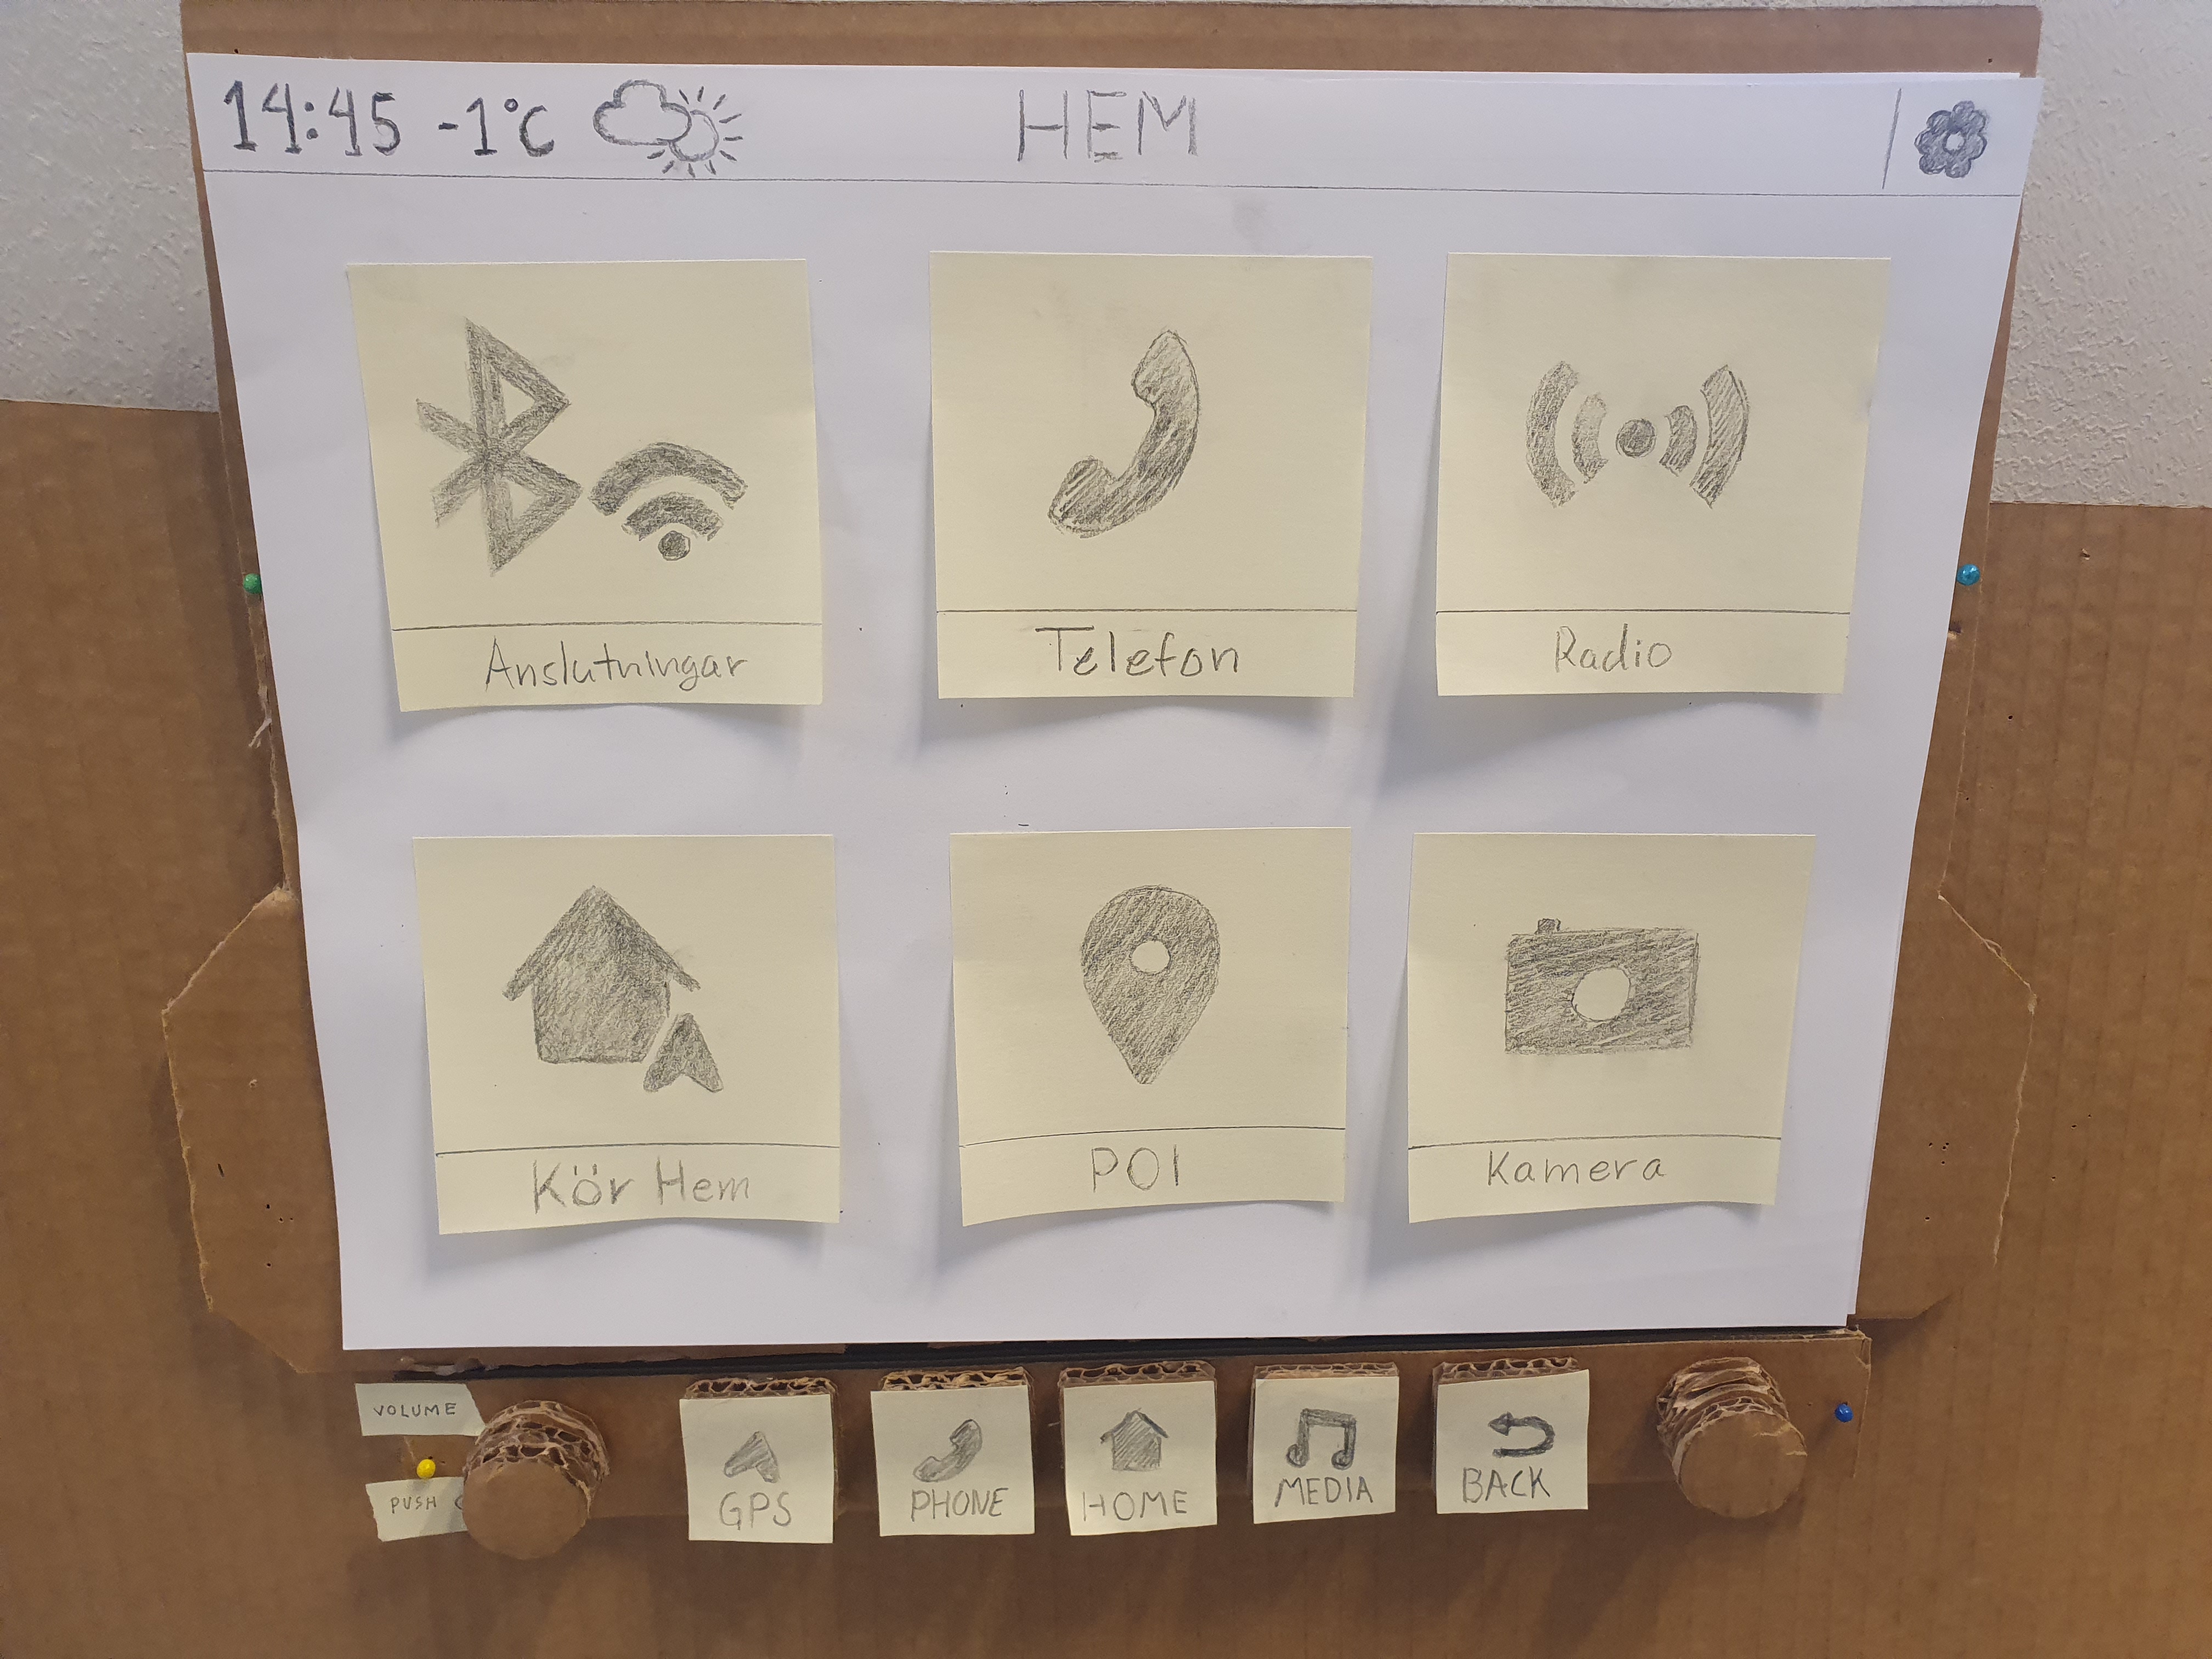 14:45 -1°C HEM
Anslutningar
Telefon
Radio
Kör Hem
POI
Kamera
VOLUME
PUSH
GPS
PHONE
HOME
MEDIA
BACK